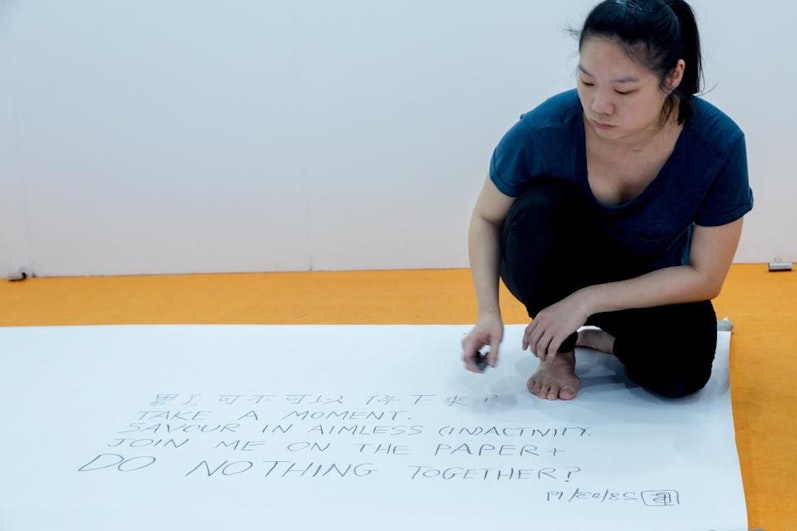 累了可不可以停下來?
TAKE A MOMENT.
SAVOUR IN AIMLESS (IN)ACTIVITY.
JOIN ME ON THE PAPER +
DO NOTHING TOGETHER?